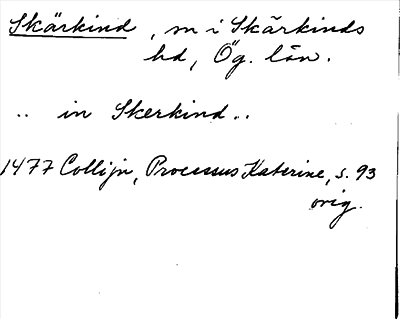 Skärkind, sn i Skärkinds
hd, Ög. län.
.. in Skerkind..
1477 Collijn, Processus Katerine, s. 93
orig.